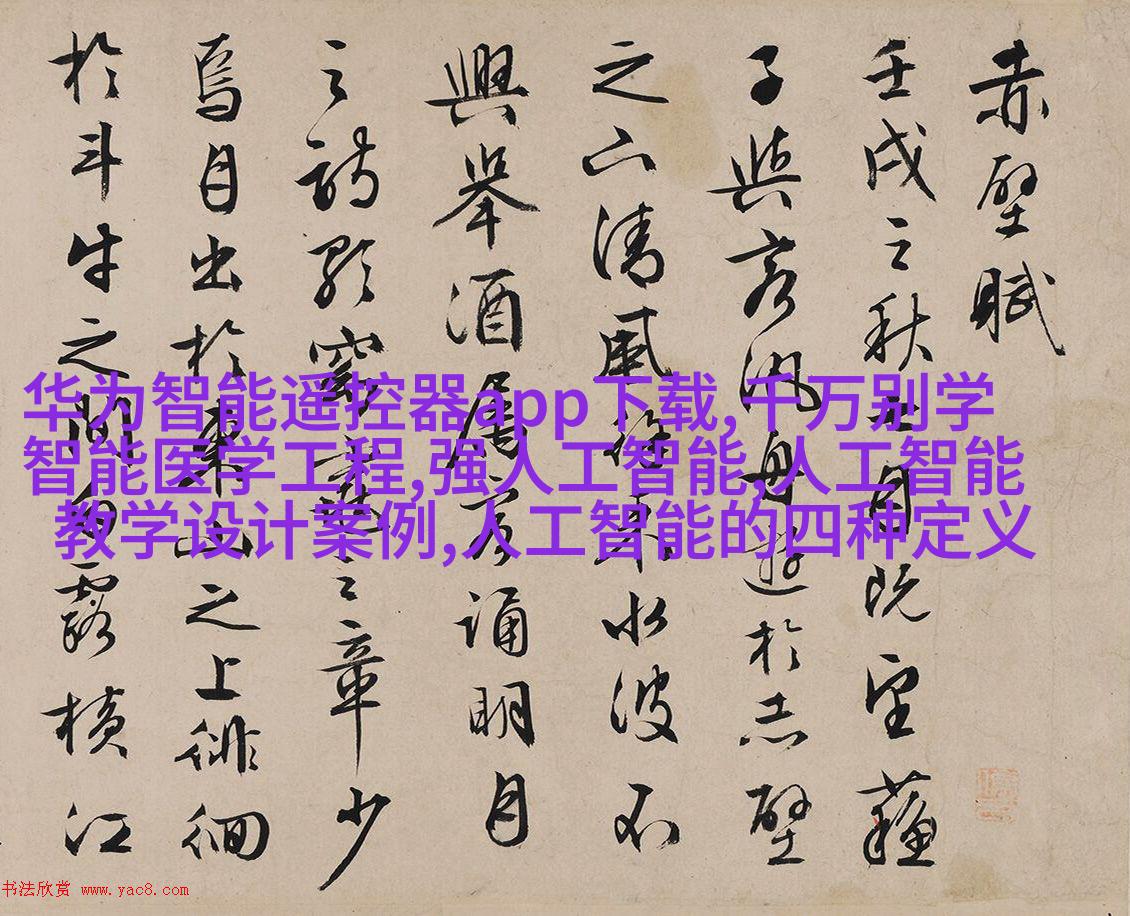 赤壁賦
壬戌之秋七月既望蘇
子與客汎舟遊於赤壁
之下清風徐來水波不
興舉酒屬客誦明月
之詩歌窈窕之章少
焉月出於東山之上徘徊
於斗牛之間白露橫江
华为智能遥控器app下载,千万别学
智能医学工程,强人工智能,人工智能
教学设计案例,人工智能的四种定义
书法欣赏 www.yac8.com